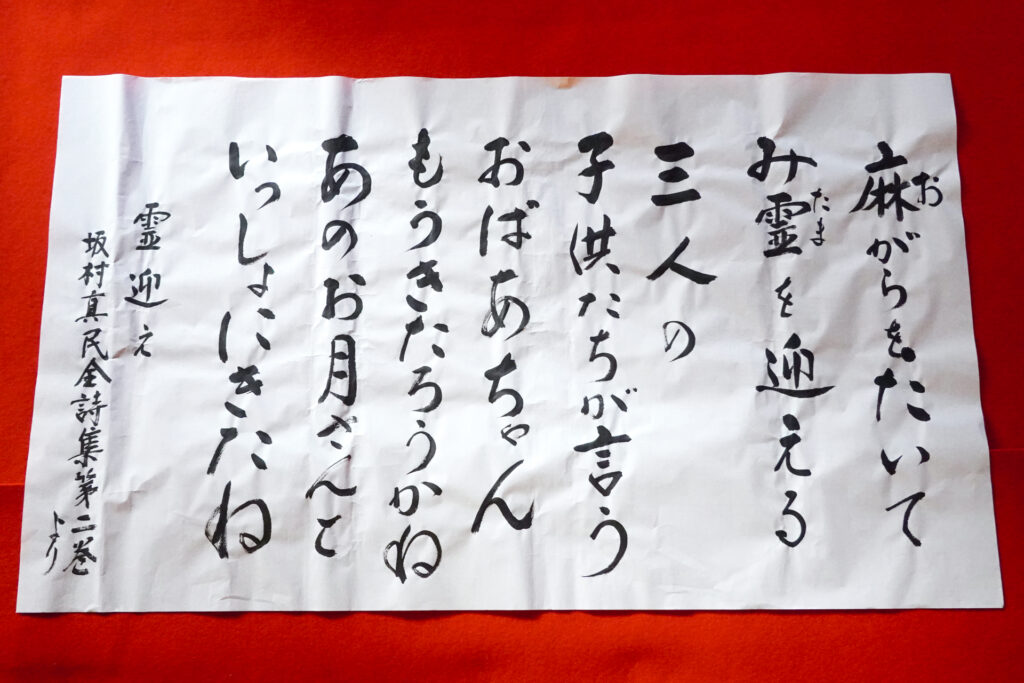 麻がらをたいて
み霊を迎える
三人の
子供たちが言う
おばあちゃん
もうきたろうかね
あのお月さんと
いっしょにきたね
霊迎え
坂村真民全詩集第二巻
より
お
たま